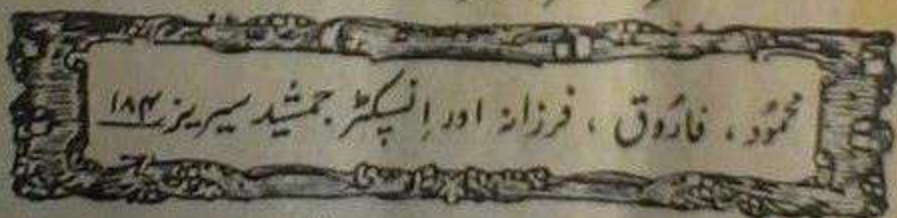 محمود ، فاروق ، فرزانہ اور انسپکٹر جمشید سیریز ۱۸۴